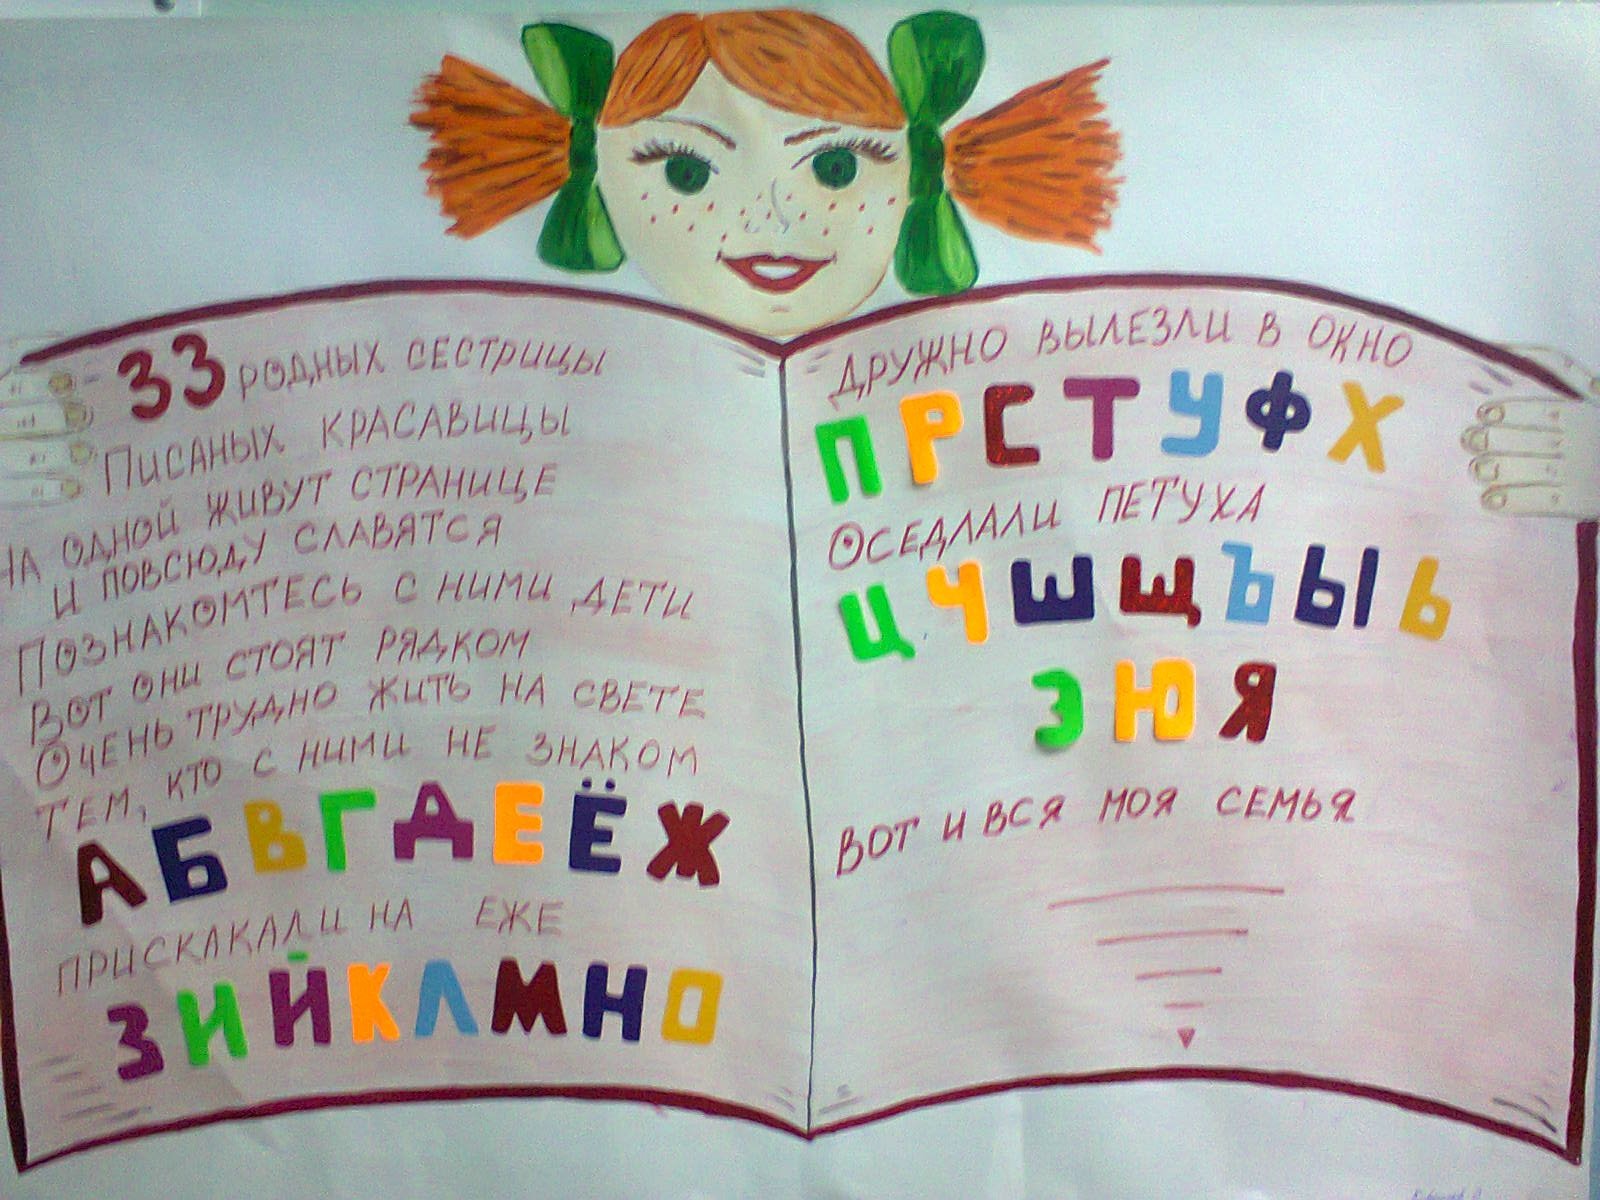 33 РОДНЫХ СЕСТРИЦЫ
ПИСАНЫХ КРАСАВИЦЫ
НА ОДНОЙ ЖИВУТ СТРАНИЦЕ
И ПОВСЮДУ СЛАВЯТСЯ
ПОЗНАКОМТЕСЬ С НИМИ ДЕТИ
ВОТ ОНИ СТОЯТ РЯДКОМ
ОЧЕНЬ ТРУДНО ЖИТЬ НА СВЕТЕ
ТЕМ, КТО С НИМИ НЕ ЗНАКОМ
АБВГДЕЁЖ
ПРИСКАКАЛИ НА ЕЖЕ
ЗИЙКЛМНО
ДРУЖНО ВЫЛЕЗЛИ В ОКНО
ПРСТУФХ
ОСЕДЛАЛИ ПЕТУХА
ЦЧШЩЪЫЬ
ЭЮЯ
ВОТ И ВСЯ МОЯ СЕМЬЯ